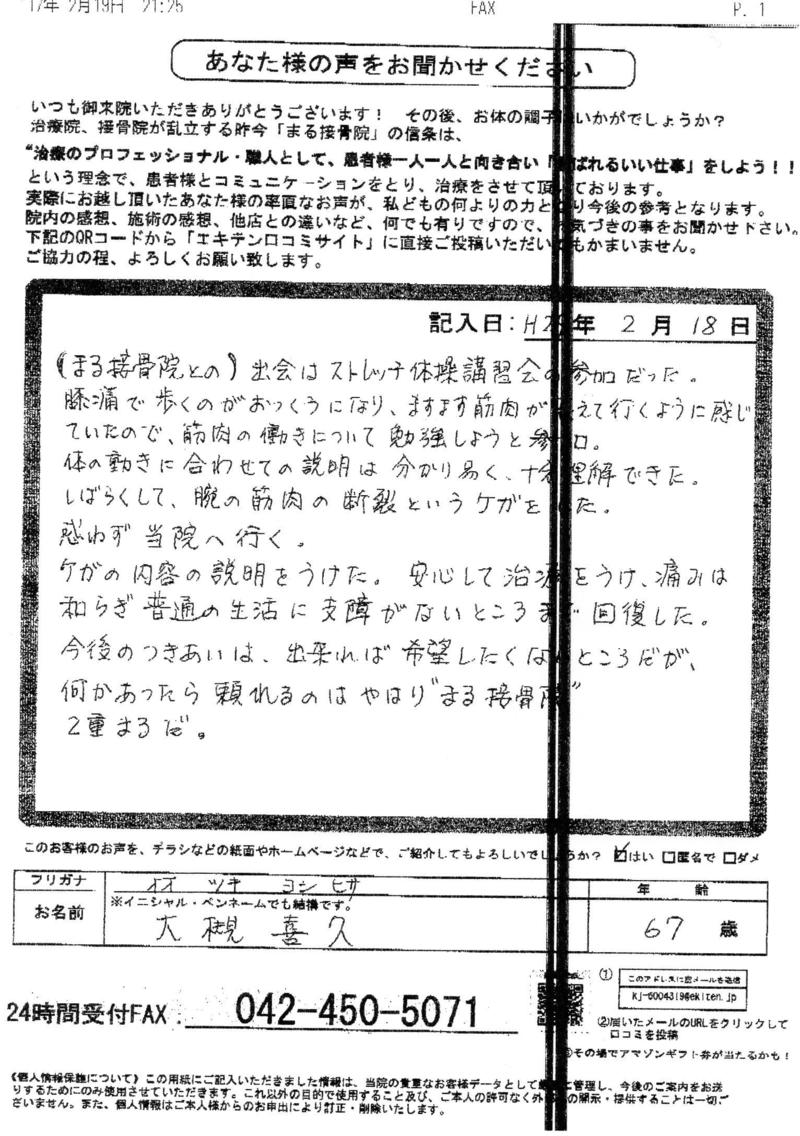 17年 2月19日 21:25 FAX P. 1
あなた様の声をお聞かせください
いつも御来院いただきありがとうございます！ その後、お体の調子 いかがでしょうか？
治療院、接骨院が乱立する昨今「まる接骨院」の信条は、
“治療のプロフェッショナル・職人として、患者様一人一人と向き合い「 ばれるいい仕事」をしよう！！
という理念で、患者様とコミュニケーションをとり、治療をさせて頂いております。
実際にお越し頂いたあなた様の率直なお声が、私どもの何よりの力となり今後の参考となります。
院内の感想、施術の感想、他店との違いなど、何でも有りですので、お気づきの事をお聞かせ下さい。
下記のQRコードから「エキテン口コミサイト」に直接ご投稿いただいてもかまいません。
ご協力の程、よろしくお願い致します。
記入日：H29年 2月 18日
(まる接骨院との) 出会はストレッチ体操講習会の参加だった。
膝痛で歩くのがおっくうになり、ますます筋肉が えて行くように感じ
ていたので、筋肉の働きについて勉強しようと参加。
体の動きに合わせての説明は分かり易く、十分理解できた。
しばらくして、腕の筋肉の断裂というケガをした。
惑わず当院へ行く。
ケガの内容の説明をうけた。安心して治療をうけ、痛みは
和らぎ普通の生活に支障がないところまで回復した。
今後のつきあいは、出来れば希望したくないところだが、
何かあったら頼れるのはやはり“まる接骨院”
2重まるだ。
このお客様のお声を、チラシなどの紙面やホームページなどで、ご紹介してもよろしいでしょうか？ ☑はい □匿名で □ダメ
フリガナ オオ ツキ ヨシ ヒサ 年 齢
お名前 ※イニシャル・ペンネームでも結構です。
大槻 喜久 67 歳
24時間受付FAX： 042-450-5071
① このアドレスに空メールを送信
kj-6004319@ekiten.jp
②届いたメールのURLをクリックして
口コミを投稿
③その場でアマゾンギフト券が当たるかも！
《個人情報保護について》この用紙にご記入いただきました情報は、当院の貴重なお客様データとして厳重に管理し、今後のご案内をお送
りするためにのみ使用させていただきます。これ以外の目的で使用すること及び、ご本人の許可なく外部への開示・提供することは一切ご
ざいません。また、個人情報はご本人様からのお申出により訂正・削除いたします。